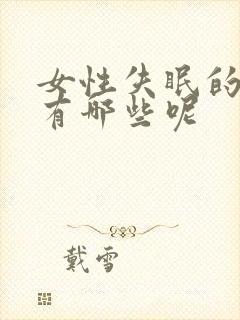 女性失眠的
有哪些呢
戴雪